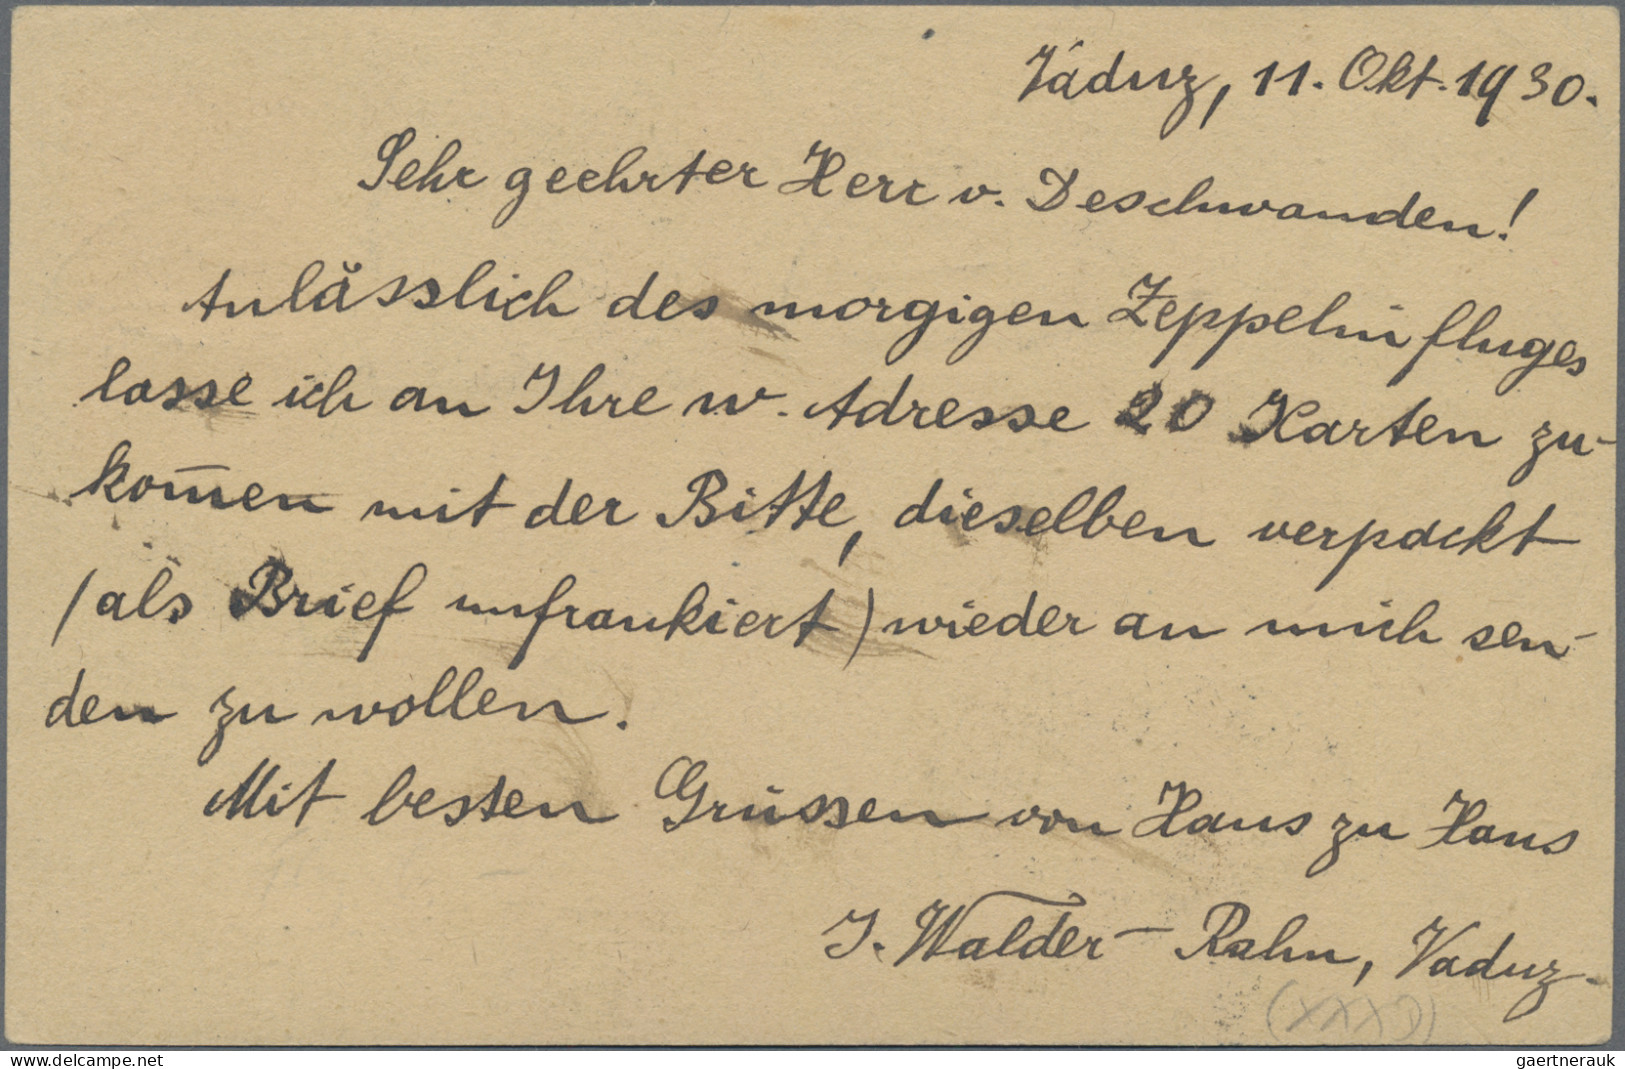 Vaduz, 11. Okt. 1930.
Sehr geehrter Herr v. Deschwanden!
Anlässlich des morgigen Zeppelinfluges
lasse ich an Ihre w. Adresse 20 Karten zu-
kom̅en mit der Bitte, dieselben verpackt
(als Brief unfrankiert) wieder an mich sen-
den zu wollen.
Mit besten Grüssen von Haus zu Haus
J. Walder-Rahn, Vaduz.
www.delcampe.net
gaertnerauk